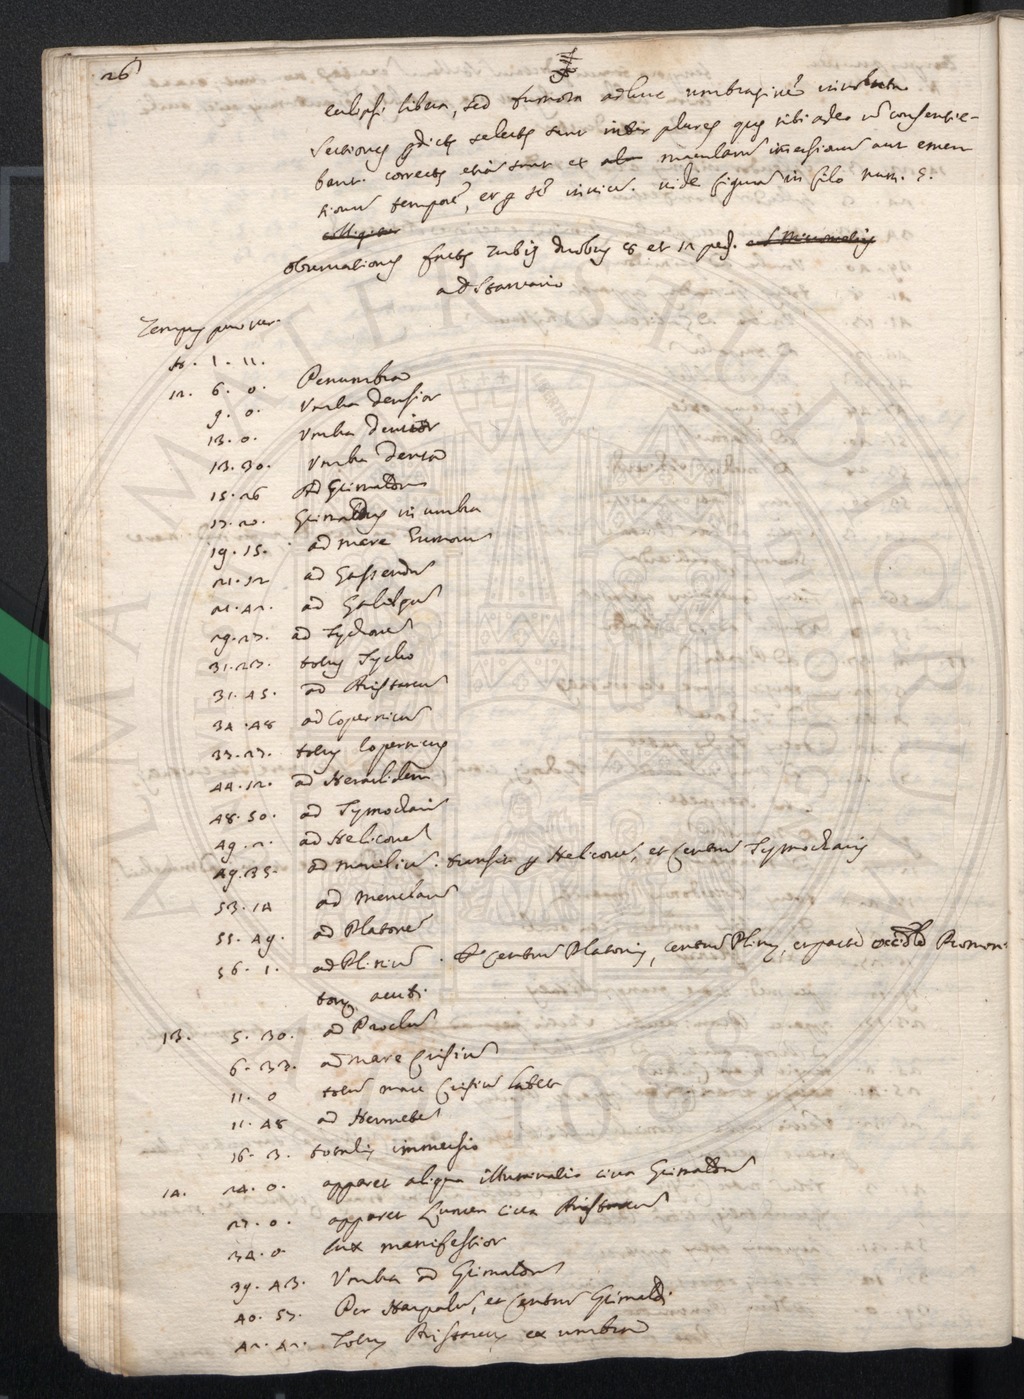 26
eclipsi libera, sed fumosa adhuc umbragine
Sectiones selectę sunt inter plures quę sibi adeo consentie-
bant. correctę etia sunt ex macularu imersionu aut emer
sionu tempore, vide figura in filo num. 9.
colligitur
observationes factę Tubis duobus 8 et 12 ped.
ad Horarario
Tempus
H. 1. 11.
12. 6. 0. Penumbra
9. 0. Umbra densior
13. 0. Umbra densior
13. 30. Umbra densa
15. 26 Ad Grimaldum
17. 20. Grimaldus in umbra
19. 15. ad mare Humoru
21. 12 ad Gassendu
21. 42. ad Galilęu
29. 27. ad Tychone
31. 27. totus Tycho
31. 45. ad Aristarcu
34. 48 ad Copernicu
37. 27. totus Copernicus
44. 12. ad Heraclidem
48. 50. ad Tymochari
49. 2. ad Helicone
49. 35. ad maniliu. transit p Helicone, et centru Tymocharis
53. 14 ad Menelau
55. 49. ad Platone
56. 1. ad Pliniu. centru Platonis, centru Plinij, Promon
torij acuti
13. 5. 30. ad Proclu
6. 33. ad mare Crisiu
11. 0 totu mare Crisiu latet
11. 48 ad Hermete
16. 3. totalis immersio
14. 24. 0. apparet aliqua illuminatio circa Grimaldu
27. 0. apparet Lumen circa Aristarcu
34. 0. lux manifestior
39. 43. Umbra ad Grimaldu
40. 57. Per Harpalu, et Centru Grimaldi
42. 42. Totus Aristarcus ex umbra